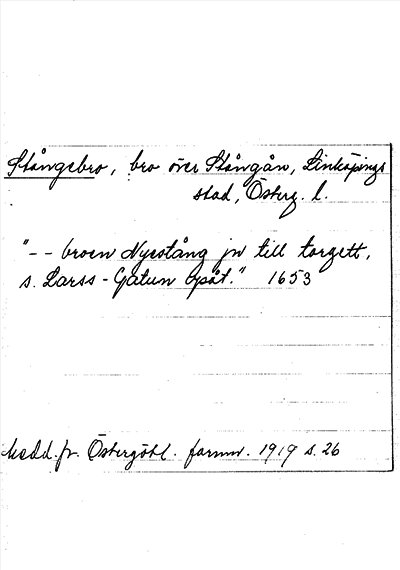 Stångebro, bro över Stångån, Linköpings
stad, Österg. l.
"-- broen Nyestång jn till torgett,
s. Larss-Gatun Opåt." 1653
Medd. fr. Östergötl. fornm. 1919 s. 26